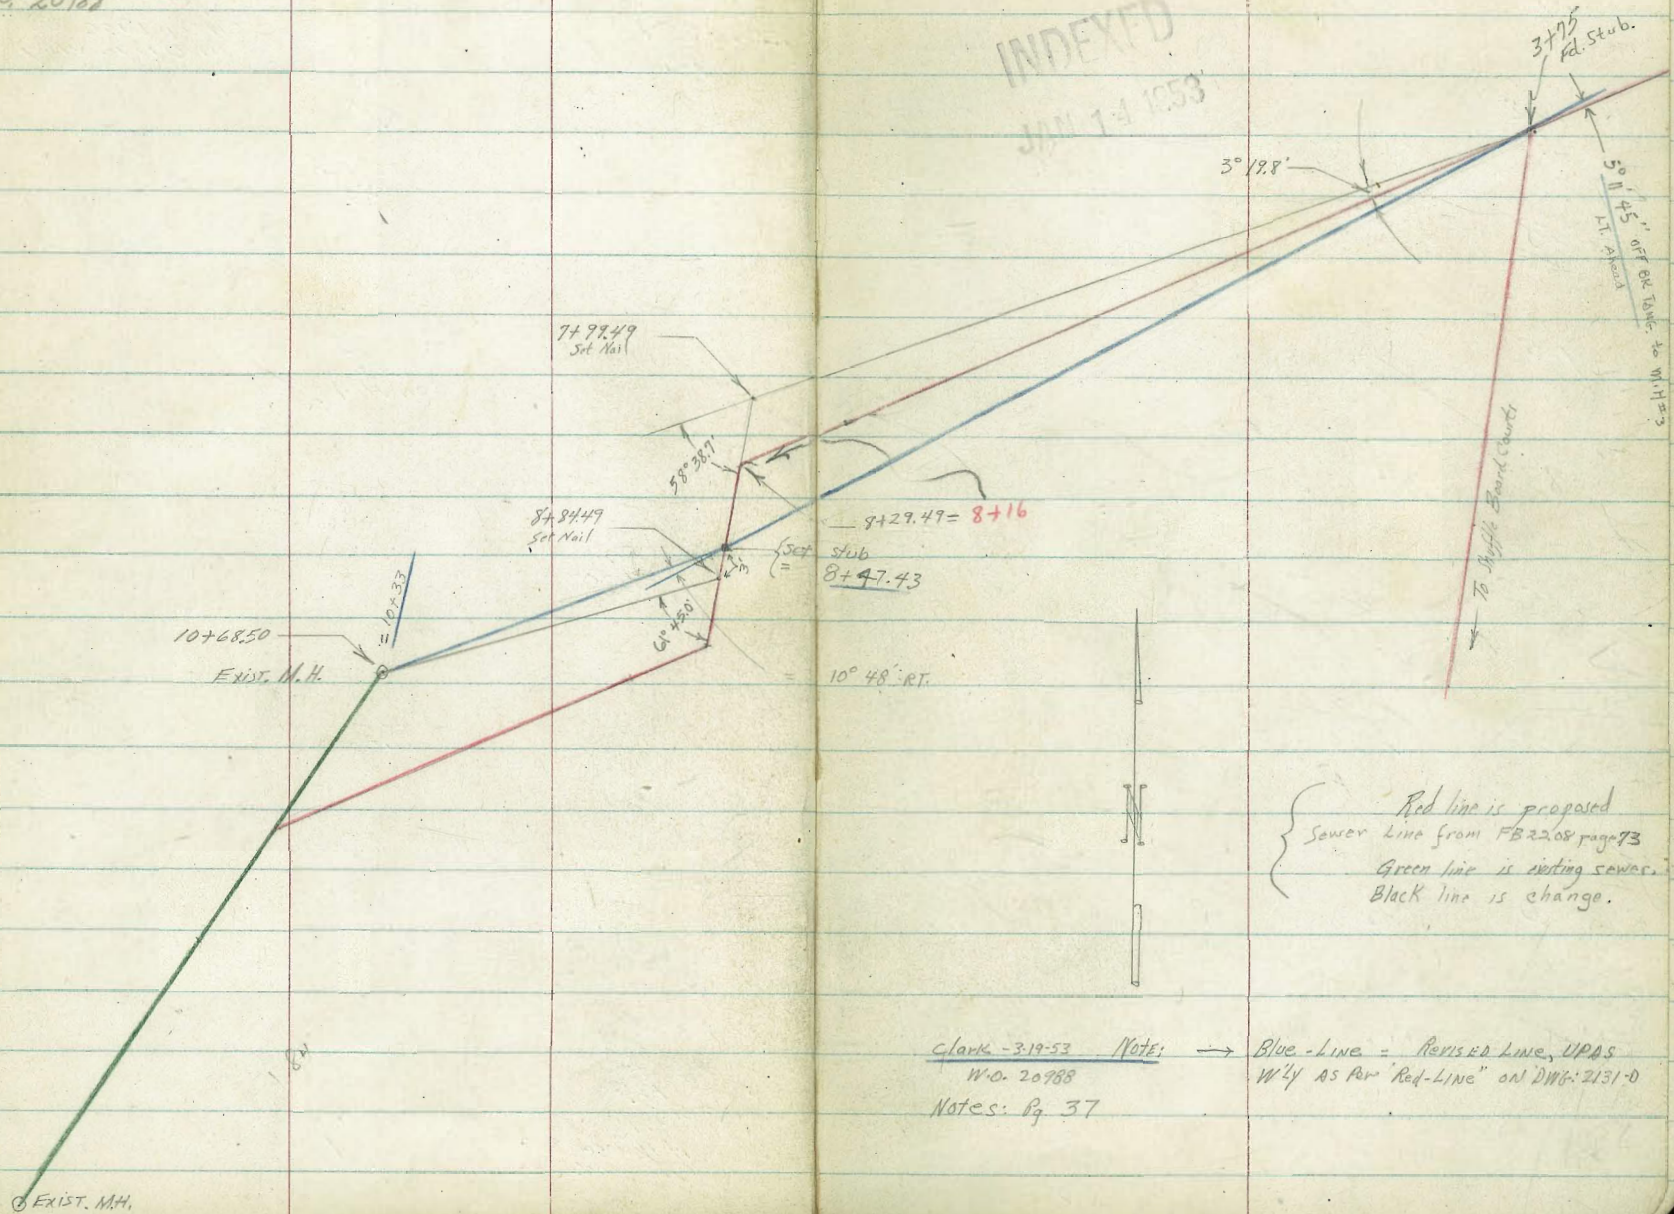 INDEXED
JAN 14 1953
3+75
Fd. Stub.
3° 19.8'
5° 11' 45" OFF BK TANG. to M.H #3
LT. Ahead
7+99.49
Set Nail
58° 38.7'
8+29.49 = 8+16
8+84.49
Set Nail
{Set stub
= 8+47.43
3'
61° 45.0'
= 10+33
10+68.50
Exist. M.H.
= 10° 48' RT.
To Shuffle Board Courts
N
Red line is proposed
Sewer Line from FB2208 page 73
Green line is existing sewer.
Black line is change.
Clark -3-19-53 Note: → Blue-Line = Revised Line, UPDS
W.O. 20988 W'ly AS Per "Red-Line" ON DWG: 2131-D
Notes: Pg 37
8"
Exist. M.H.